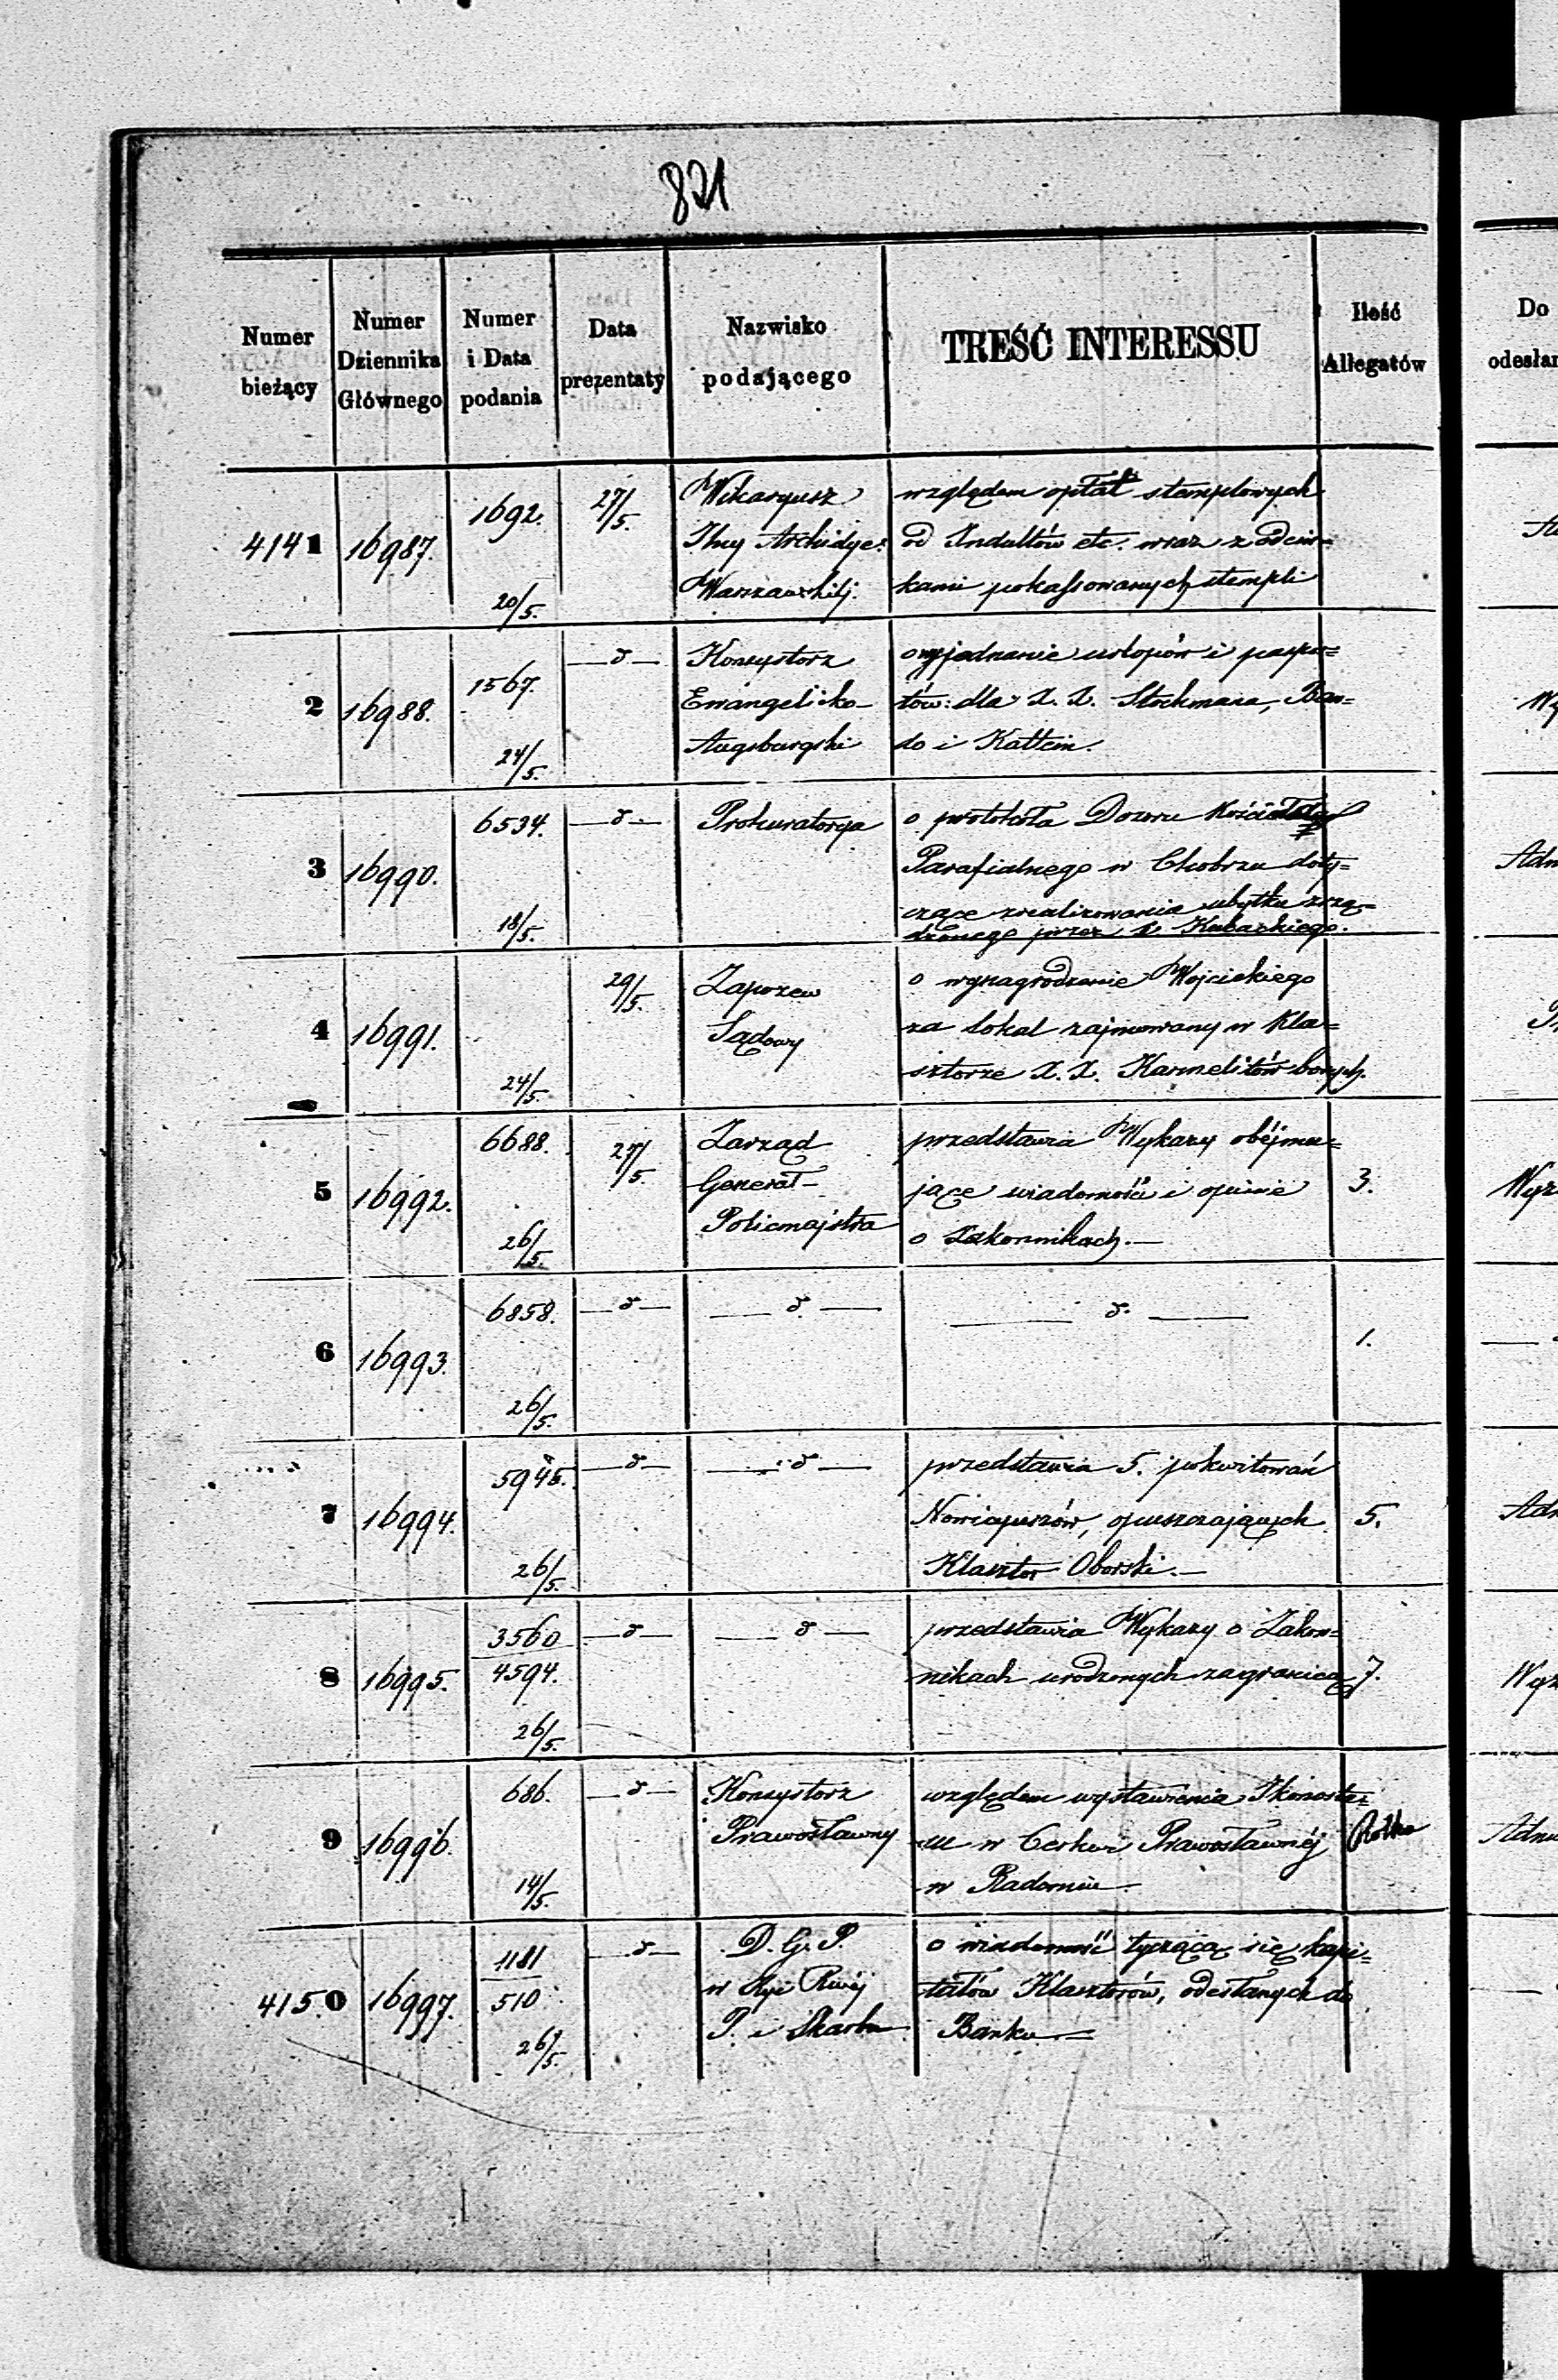 821
Numer bieżący
Numer Dziennika Głównego
Numer i Data podania
Data prezentaty
Nazwisko podającego
TREŚĆ INTERESSU
Ilość Allegatów
Do
odesłan
4141 16987. 1692. 20/5. 27/5.
Wikaryusz
Archidye:
Warszawskiej.
względem opłat stemplowych
od Indultów etc. wraz z odcin=
kami pokassowanych stempli
2 16988. 1567. 24/5. — d —
Konsystorz
Ewangelicko-
Augsburgski
o wyjednanie urlopów i paszpor=
tów: dla X. X. Stockmana, Ban=
do i Kattein.
Wy
3 16990. 6534. 18/5. — d —
Prokuratorya
o protokóła Dozoru
Parafialnego w Chobrzu doty-
czące zrealizowania ubytku zrzą=
dzonego przez X. Kubarkiego.
Adm
4 16991. 24/5. 29/5.
Zapozew
Sądowy
o wynagrodzenie Wojcickiego
za lokal zajmowany w Kla=
sztorze X. X. Karmelitów bosych.
5 16992. 6688. 26/5. 27/5.
Zarząd
Generał-
Policmajstra
przedstawia Wykazy obéjmu=
jące wiadomości i opinie
o Zakonnikach. —
3.
Wyz
6 16993. 6858. 26/5. — d — — d — — d. —
1.
7 16994. 5945. 26/5. — d — — d —
przedstawia 5. pokwitowań
Nowicyuszów, opuszczających
Klasztor Oborski. —
5.
Adm
8 16995. 3560
4594. 26/5. — d — — d —
przedstawia Wykazy o Zakon=
nikach urodzonych zagranicą
7.
Wyz
9 16996. 686. 14/5. — d —
Konsystorz
Prawosławny
względem wystawienia Ikonosta=
su w Cerkwi Prawosławnéj
w Radomiu —
Adm
4150 16997. 1181
510 26/5. — d —
D. G. P.
w
P. i Skarbu
o wiadomość tyczącą się kapi=
tałów Klasztorów, odesłanych do
Banku —